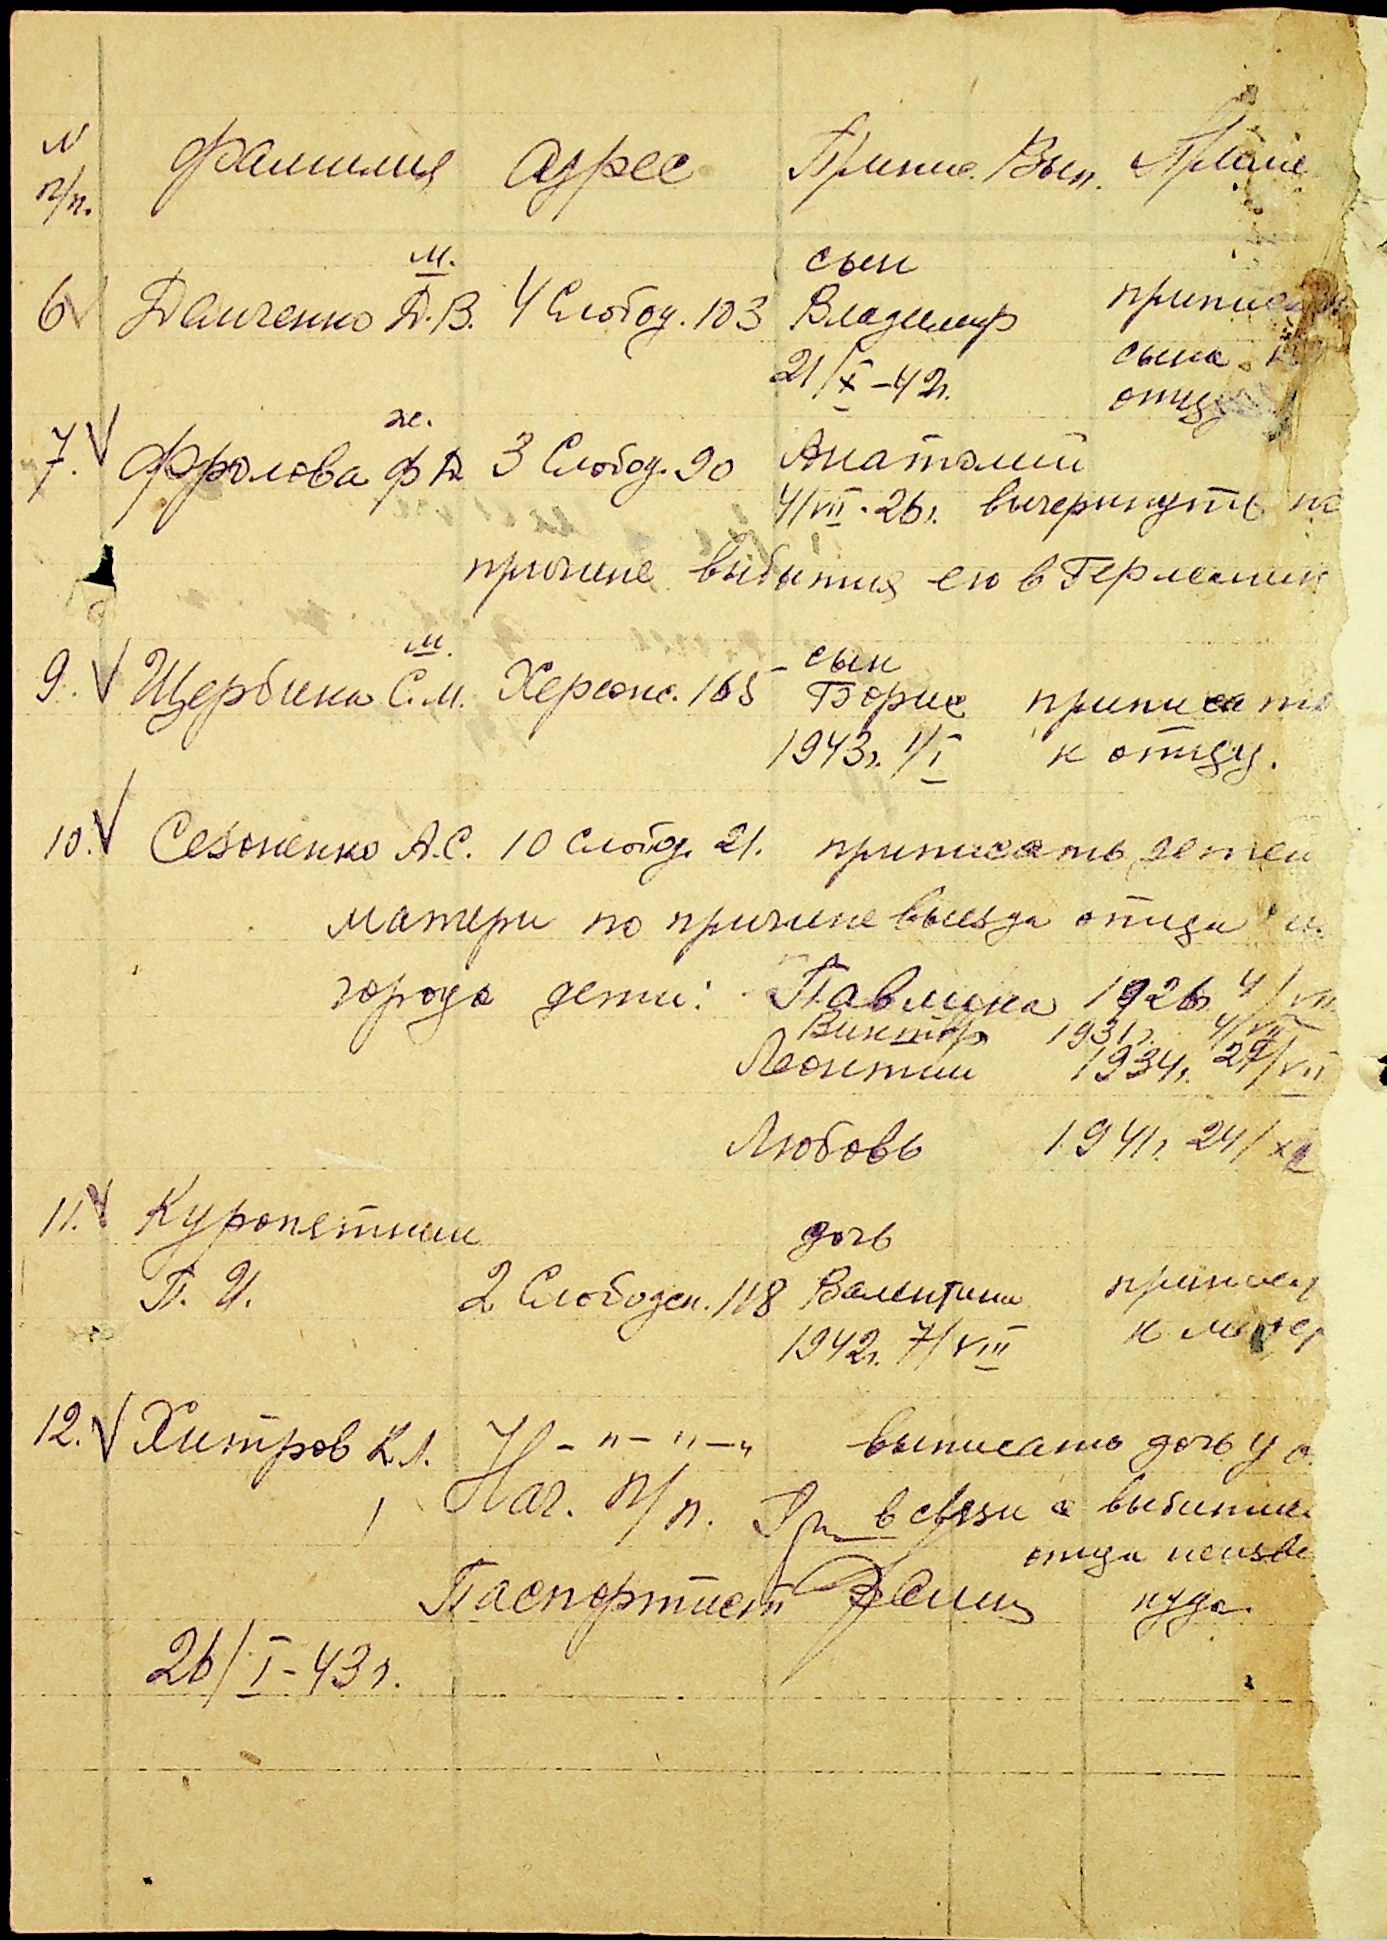 N п/п. Фамилия Адрес Припис. Вып. Приме
м. сын
6 Данченко Д.В. 4 Слобод. 103 Владимир
21/X-42г. сына
отцу
ж.
7. Фролова Ф 3 Слобод. 90 Анатолий
4/VII-26г. вычеркнуть по
причине выбытия его в Германи
м. сын
9. Щербина С.М. Херсонс. 165 Борис приписать
1943г. 1/I к отцу.
10. Сезоненко А.С. 10 Слобод. 21. приписать детей
матери по причине выезда отца
города дети: Павлина 1926г. 4/VII
Виктор 1931г. 4/VII
Леонтий 1934г. 29/VII
Любовь 1941г. 24/XI
11. Куропятник дочь
П. И. 2 Слободск. 118 Валентина
1942г. 7/VIII к матер
12. Хитров К.Л. Н-"-"-" выписать дочь у о
Нач. п/п. в связи с выбытием
отца неизве
Паспортист куда.
26/I-43г.